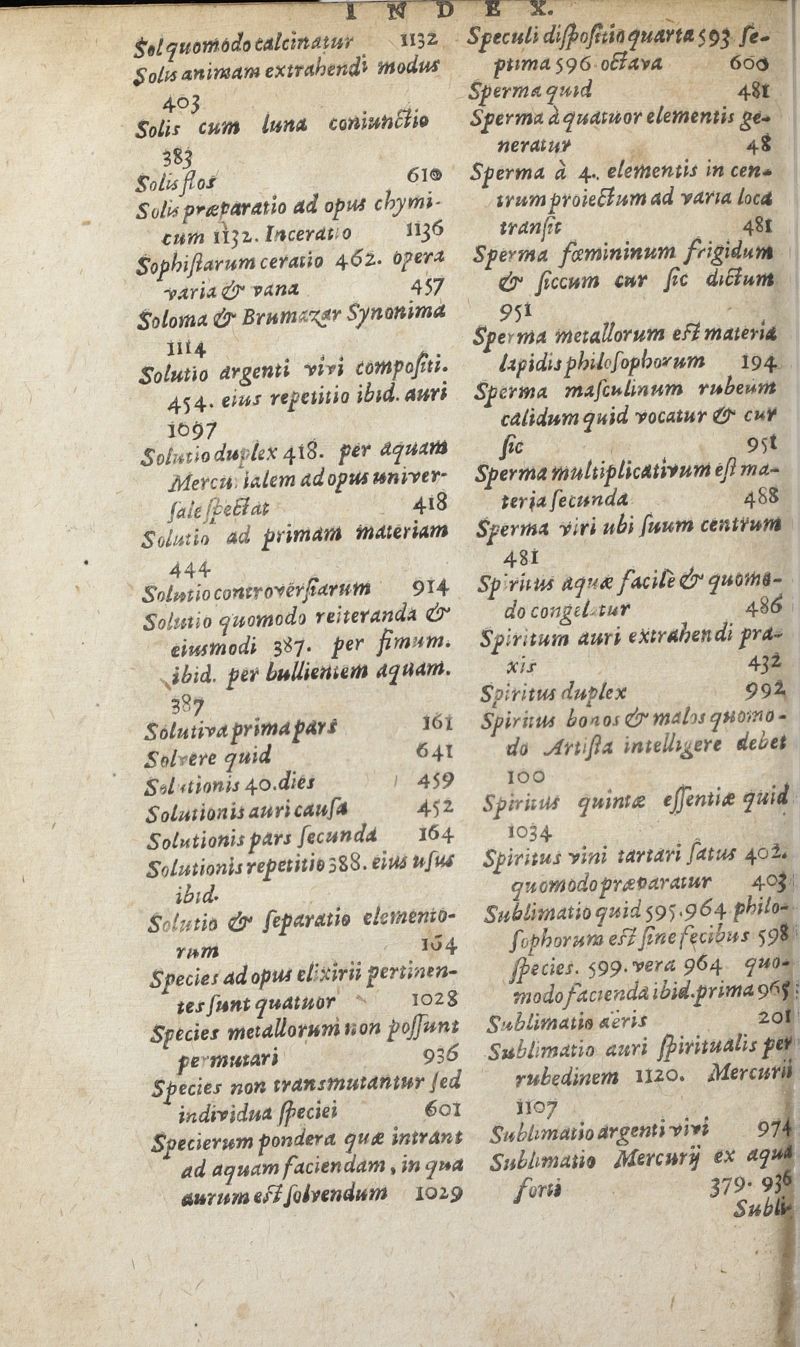 INDEX.
Sol quomodo calcinatur 1132
Solis animam extrahendi modus
403
Solis cum luna coniunctio
383
Solis flos 610
Solis præparatio ad opus chymi-
cum 1132. Inceratio 1136
Sophistarum ceratio 462. opera
varia & vana 457
Soloma & Brumazar Synonima
1114
Solutio argenti vivi compositi.
454. eius repetitio ibid. auri
1097
Solutio duplex 418. per aquam
Mercurialem ad opus univer-
sale spectat 418
Solutio ad primam materiam
444
Solutio controversiarum 914
Solutio quomodo reiteranda &
eiusmodi 387. per fimum.
ibid. per bullientem aquam.
387
Solutiva prima pars 161
Solvere quid 641
Solutionis 40.dies 459
Solutionis auri causa 452
Solutionis pars secunda 164
Solutionis repetitio 388. eius usus
ibid.
Solutio & separatio elemento-
rum 164
Species ad opus elixirii pertinen-
tes sunt quatuor 1028
Species metallorum non possunt
permutari 936
Species non transmutantur sed
individua speciei 601
Specierum pondera quæ intrant
ad aquam faciendam, in qua
aurum est solvendum 1029
Speculi dispositio quarta 593 se-
ptima 596 octava 600
Sperma quid 481
Sperma à quatuor elementis ge-
neratur 48
Sperma à 4. elementis in cen-
trum proiectum ad varia loca
transit 481
Sperma fœmininum frigidum
& siccum cur sic dictum
951
Sperma metallorum est materia
lapidis philosophorum 194
Sperma masculinum rubeum
calidum quid vocatur & cur
sic 951
Sperma multiplicativum est ma-
teria secunda 488
Sperma viri ubi suum centrum
481
Spiritus aquæ facile & quomo-
do congelatur 486
Spiritum auri extrahendi pra-
xis 432
Spiritus duplex 992
Spiritus bonos & malos quomo-
do Artista intelligere debet
100
Spiritus quintæ essentiæ quid
1034
Spiritus vini tartari satus 402.
quomodo præparatur 403
Sublimatio quid 595.964 philo-
sophorum est sine fęcibus 598
species. 599. vera 964 quo-
modo facienda ibid. prima 965
Sublimatio aëris 201
Sublimatio auri spiritualis per
rubedinem 1120. Mercurii
1107
Sublimatio argenti vivi 974
Sublimatio Mercurij ex aqua
forti 379. 936
Subli-